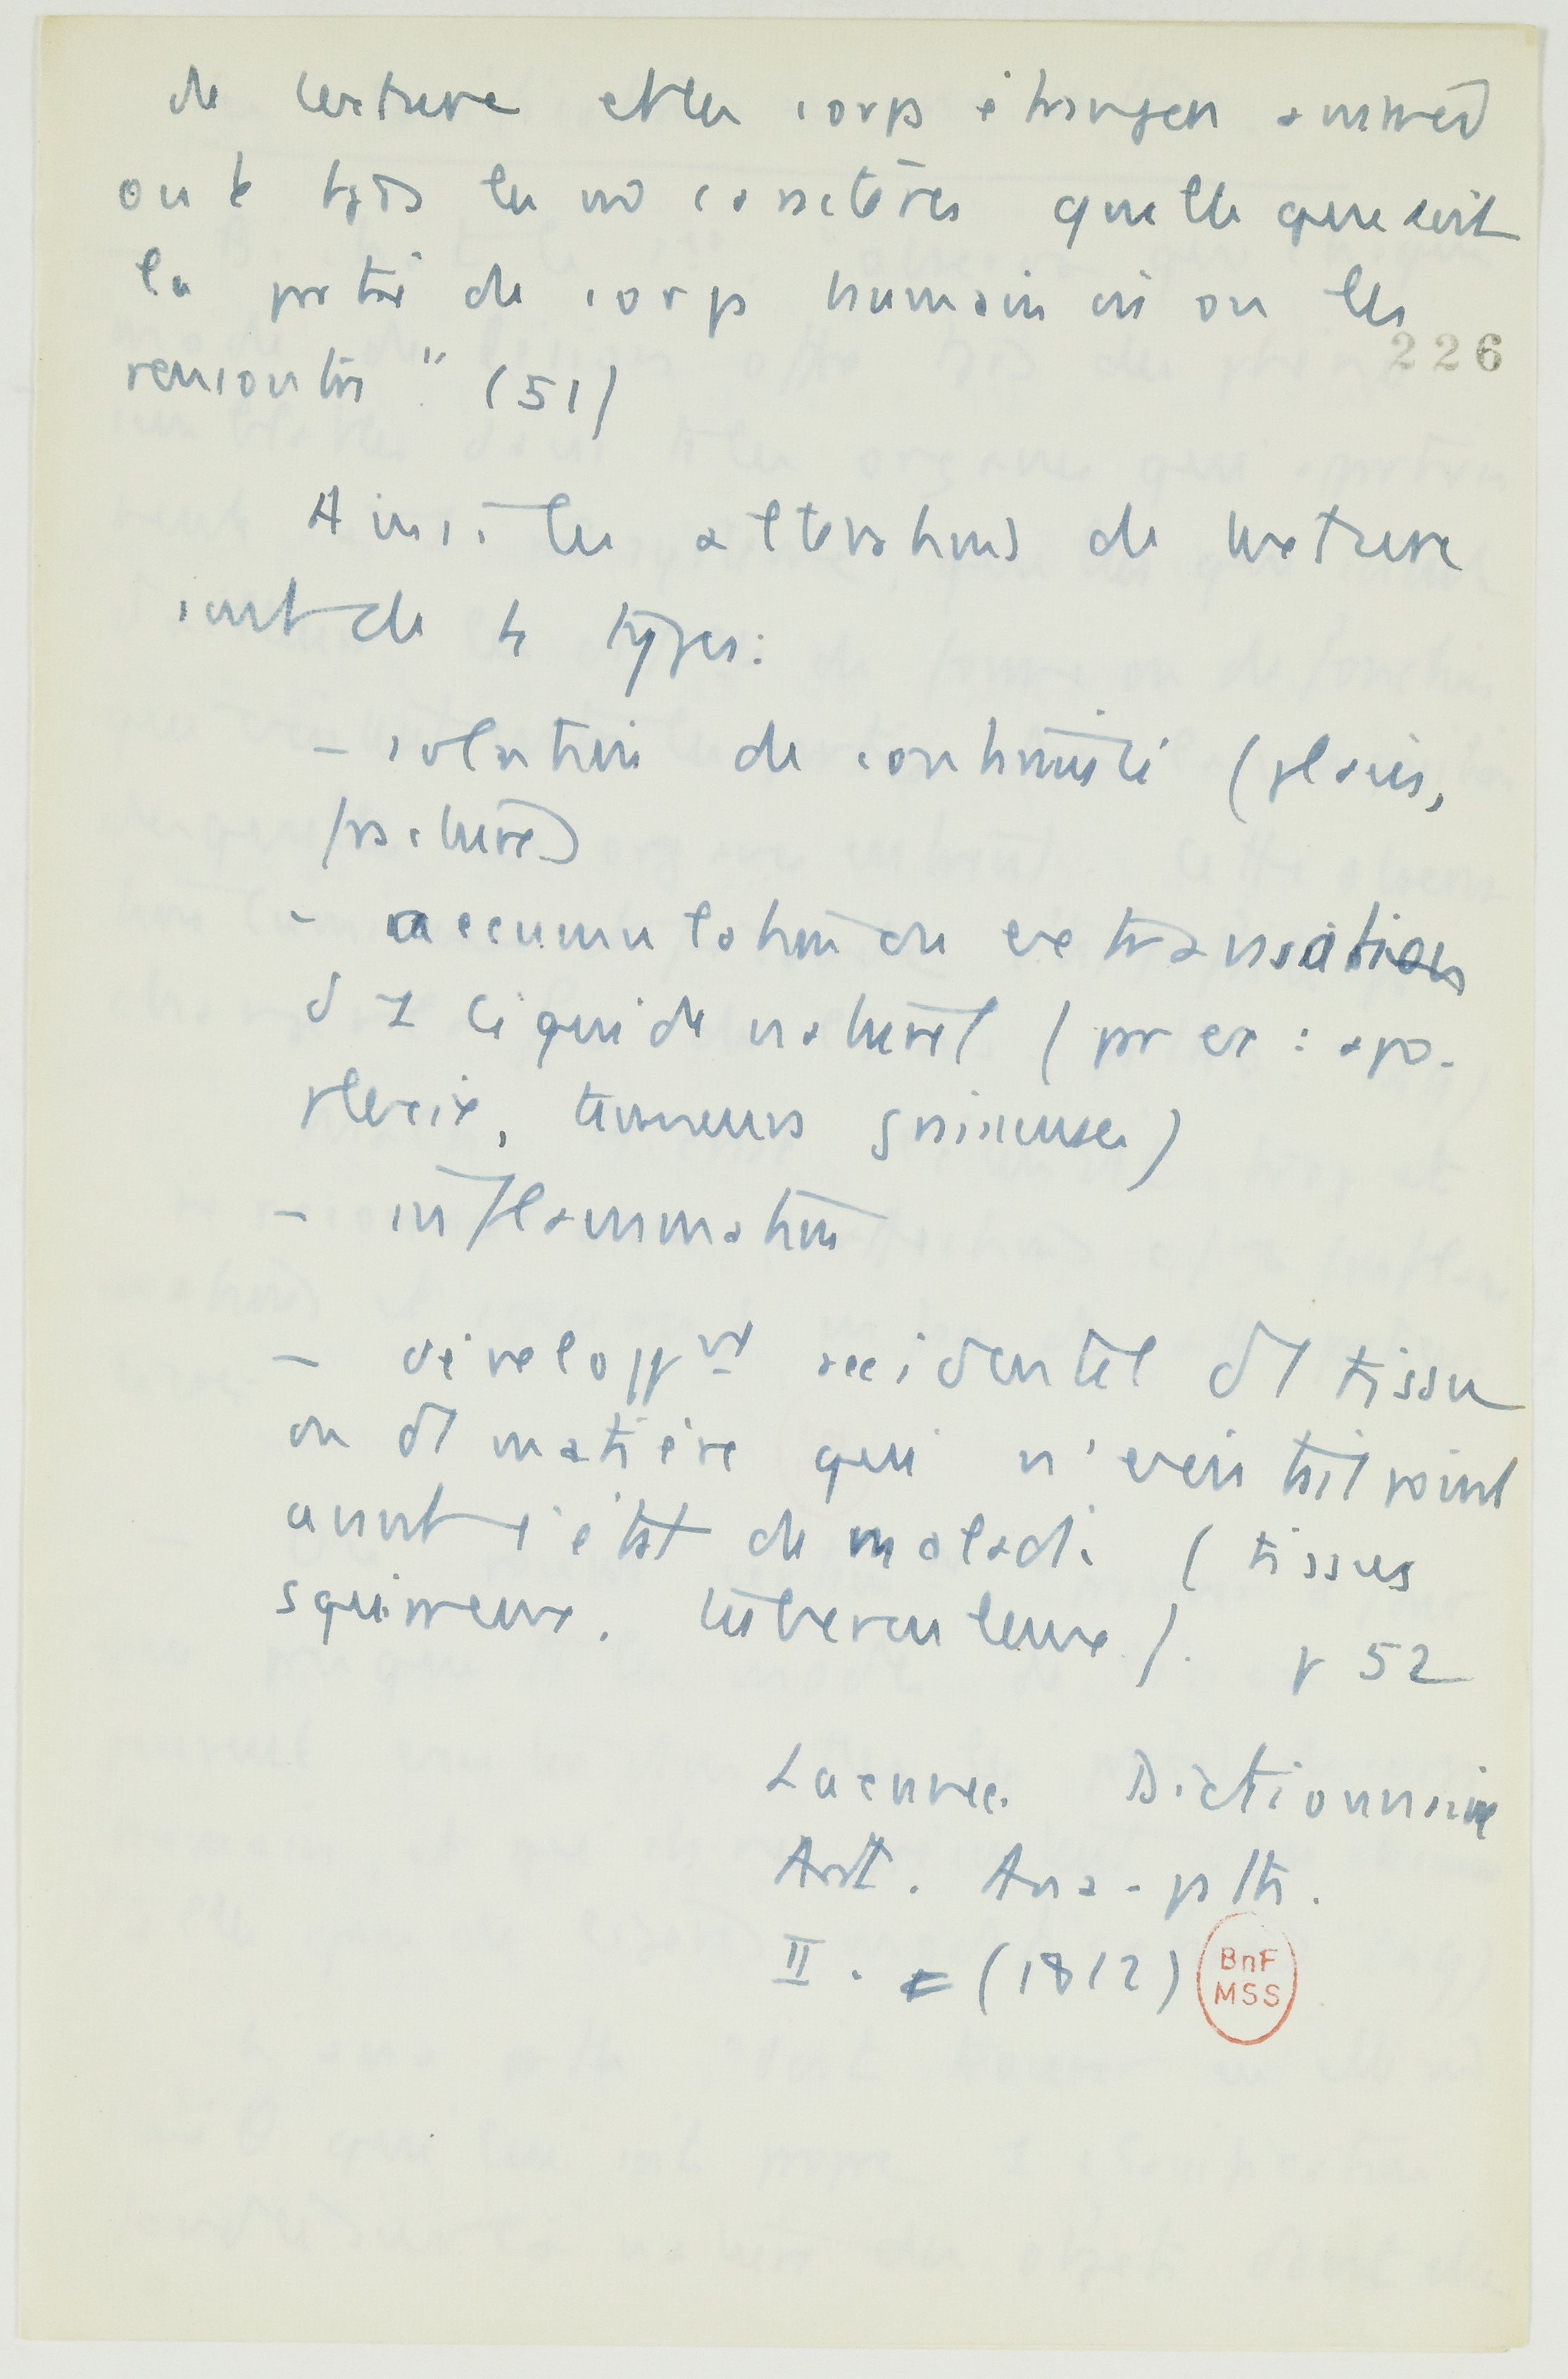 de texture et les corps étrangers animés
ont tjrs les m̂ caractères quelle que soit
la partie de corps humain où on les
226
rencontre" (51)
Ainsi les altérations de texture
sont de 4 types:
- solution de continuité (plaies,
fractures)
- accumulation ou extravasation
d'1 liquide naturel (par ex : apo-
plexie, tumeurs graisseuses)
- inflammation
- développnt accidentel d'1 tissu
ou d'1 matière qui n'existait point
avant l'état de maladie (tissus
squirreux, tuberculeux). p 52
Laennec. Dictionnaire
Art. Ana-path.
II. (1812)
BnF
MSS